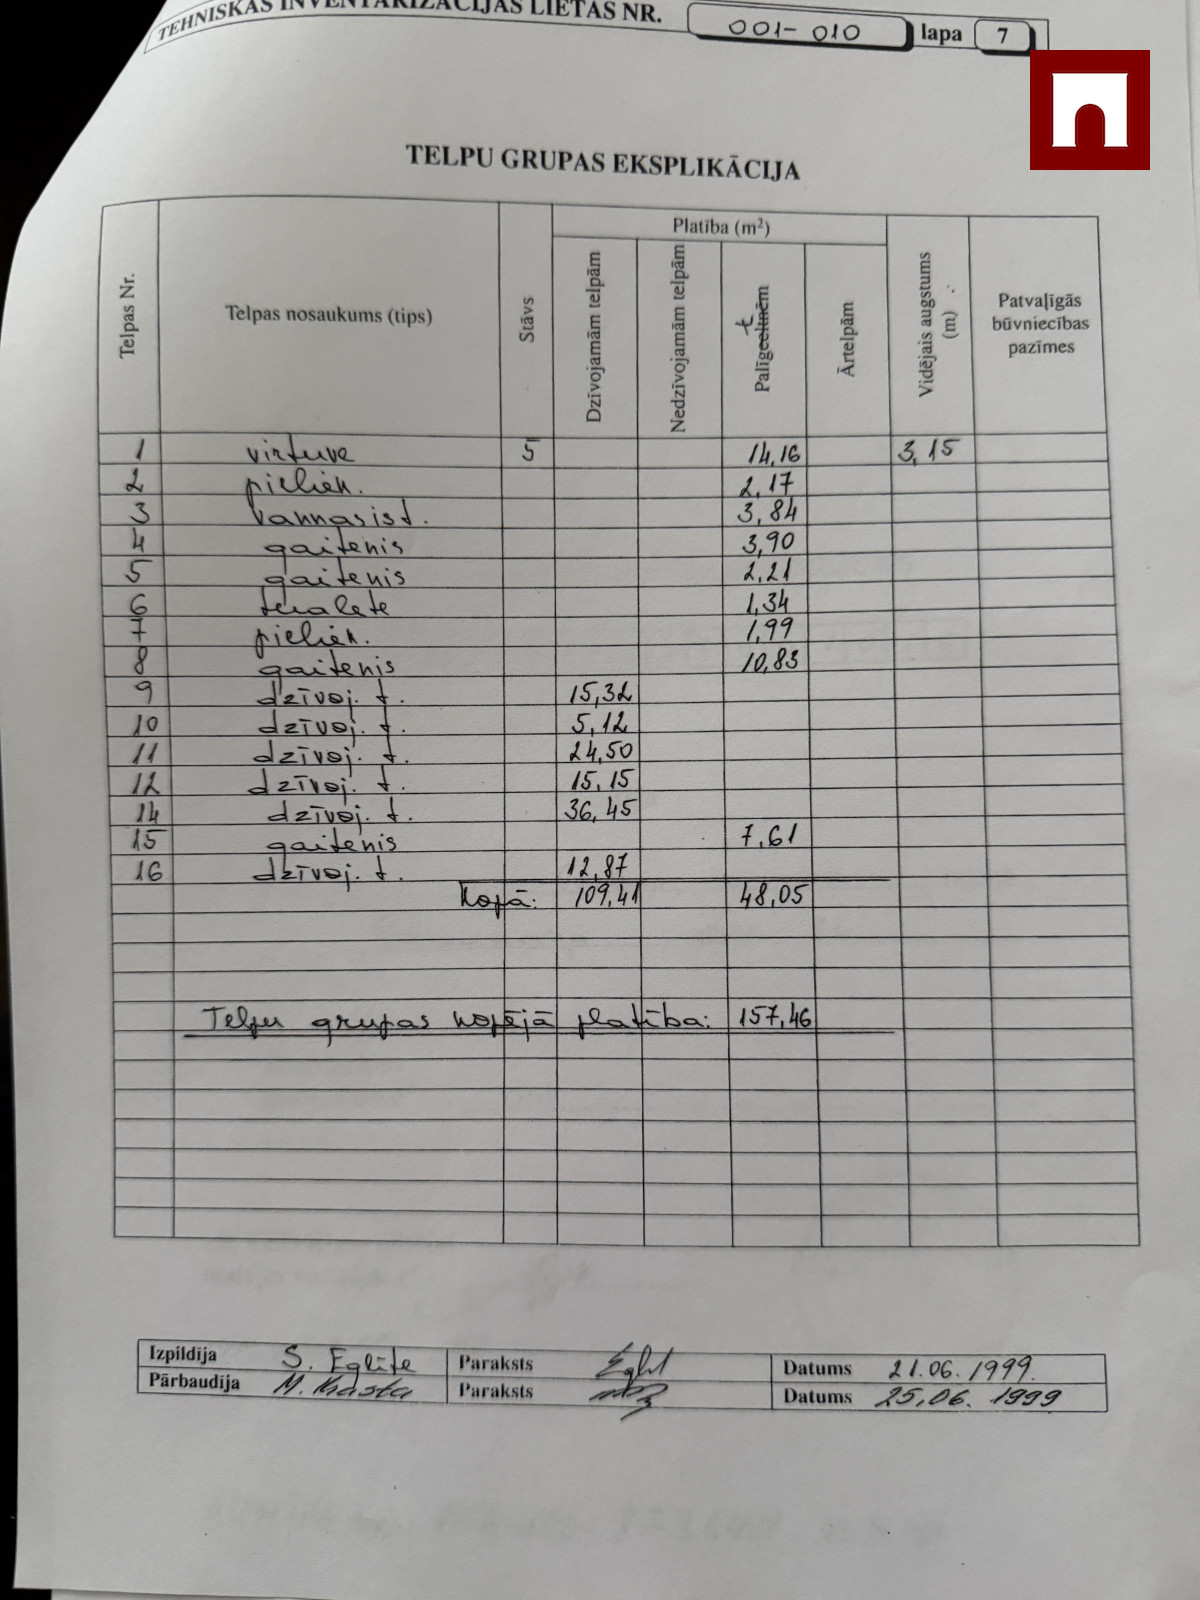 TEHNISKĀS INVENTARIZĀCIJAS LIETAS NR. 001-010 lapa 7
TELPU GRUPAS EKSPLIKĀCIJA
Telpas Nr. Telpas nosaukums (tips) Stāvs Platība (m²) Vidējais augstums (m) Patvaļīgās būvniecības pazīmes
Dzīvojamām telpām Nedzīvojamām telpām Palīgt Ārtelpām
1 virtuve 5 14,16 3,15
2 pielien. 2,17
3 vannasist. 3,84
4 gaitenis 3,90
5 gaitenis 2,21
6 tualete 1,34
7 pielien. 1,99
8 gaitenis 10,83
9 dzīvoj. t. 15,32
10 dzīvoj. t. 5,12
11 dzīvoj. t. 24,50
12 dzīvoj. t. 15,15
14 dzīvoj. t. 36,45
15 gaitenis 7,61
16 dzīvoj. t. 12,87
Kopā: 109,41 48,05
Telpu grupas kopējā platība: 157,46
Izpildīja S. Eglīte Paraksts Datums 21.06.1999.
Pārbaudīja M. Paraksts Datums 25,06. 1999